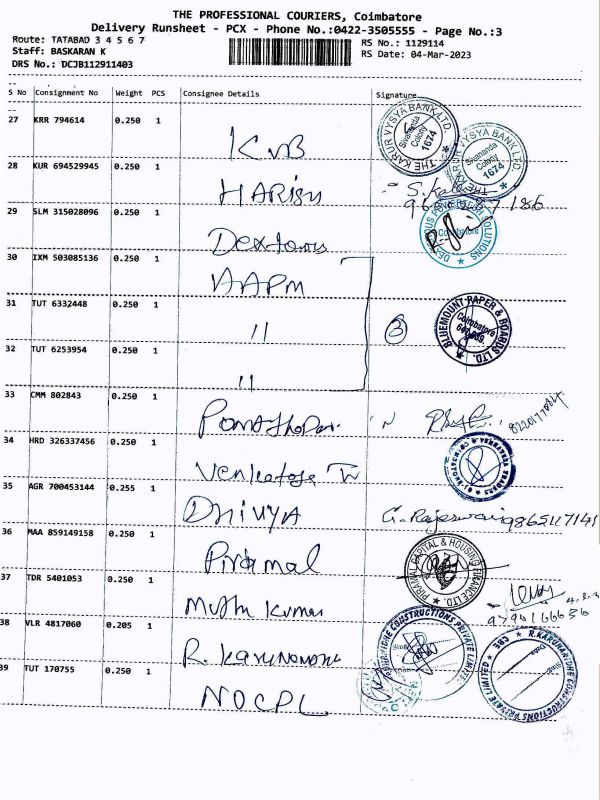 THE PROFESSIONAL COURIERS, Coimbatore
Delivery Runsheet - PCX - Phone No.:0422-3505555 - Page No.:3
Route: TATABAD 3 4 5 6 7
RS No.: 1129114
Staff: BASKARAN K
RS Date: 04-Mar-2023
DRS No.: DCJB112911403
S No Consignment No Weight PCS Consignee Details Signature
27 KRR 794614 0.250 1 KVB
THE KARUR VYSYA BANK LTD. Sivananda Colony 1674
28 KUR 694529945 0.250 1 HARISH
THE KARUR VYSYA BANK LTD. Sivananda Colony 1674
29 SLM 315028096 0.250 1
SOLUTIONS Coimbatore
30 IXM 503085136 0.250 1
31 TUT 6332448 0.250 1 11 3
BLUEMOUNT PAPER & BOARDS LTD. Coimbatore
32 TUT 6253954 0.250 1 11
33 CMM 802843 0.250 1
34 HRD 326337456 0.250 1
35 AGR 700453144 0.255 1 DHIVYA
36 MAA 859149158 0.250 1 Piramal
PIRAMAL CAPITAL & HOUSING FINANCE LTD
37 TDR 5401053 0.250 1 Muthu Kumar
38 VLR 4817060 0.205 1
CONSTRUCTIONS PRIVATE LIMITED
39 TUT 170755 0.250 1 NOCPL
R.KARUNANIDHE CONSTRUCTIONS PRIVATE LIMITED CBE